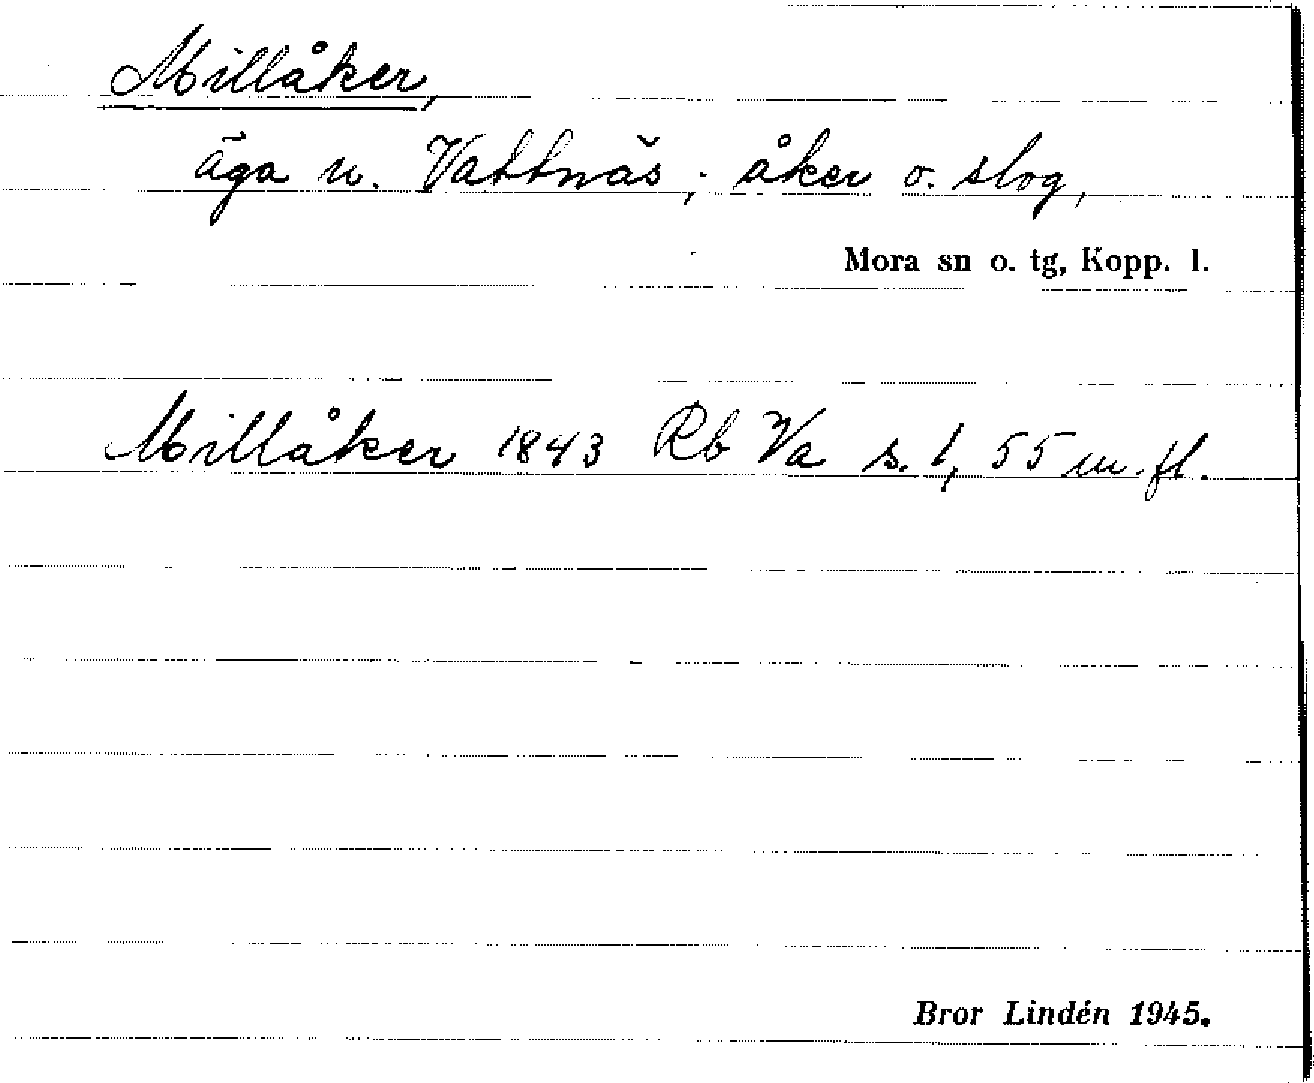 Millåker,
äga u. Vattnäs; åker o. slog,
Mora sn o. tg, Kopp. l.
Millåker 1843 Rb Va s. 1, 55 m. fl.
Bror Lindén 1945.